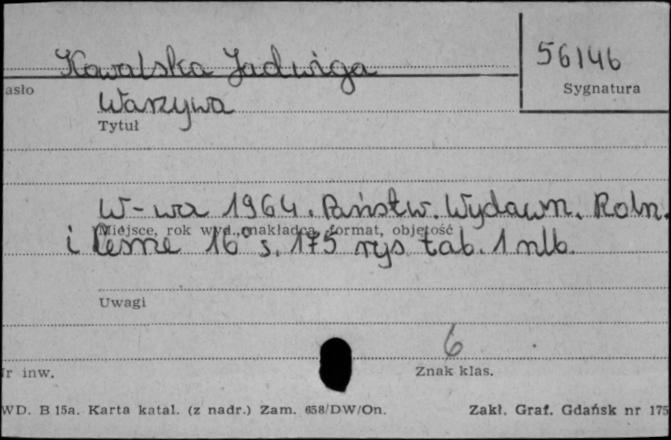 Kowalska Jadwiga
56146
asło
Sygnatura
Warzywa
Tytuł
W-wa 1964. Państw. Wydawn. Roln.
Miejsce, rok wyd., nakładca, format, objętość
i Leśne 16° s. 175 rys tab. 1 nlb.
Uwagi
6
r inw.
Znak klas.
WD. B 15a. Karta katal. (z nadr.) Zam. 658/DW/On.
Zakł. Graf. Gdańsk nr 175